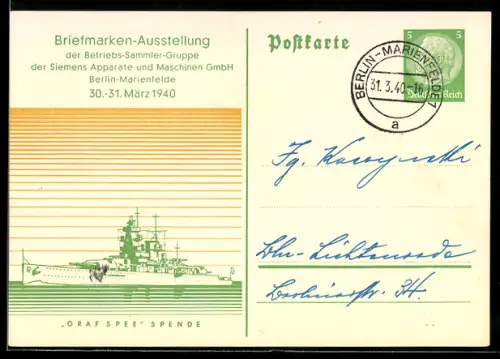 Briefmarken-Ausstellung
der Betriebs-Sammler-Gruppe
der Siemens Apparate und Maschinen GmbH
Berlin-Marienfelde
30.-31. März 1940
„GRAF SPEE" SPENDE
Postkarte
5 5
Deutsches Reich
BERLIN-MARIENFELDE 1
31.3.40
a
Bln-Lichtenrade